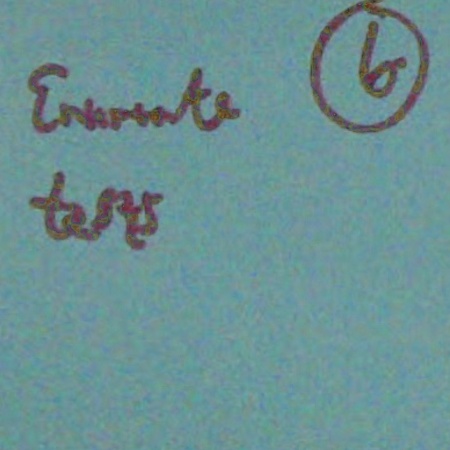 6
Enumerate
tests